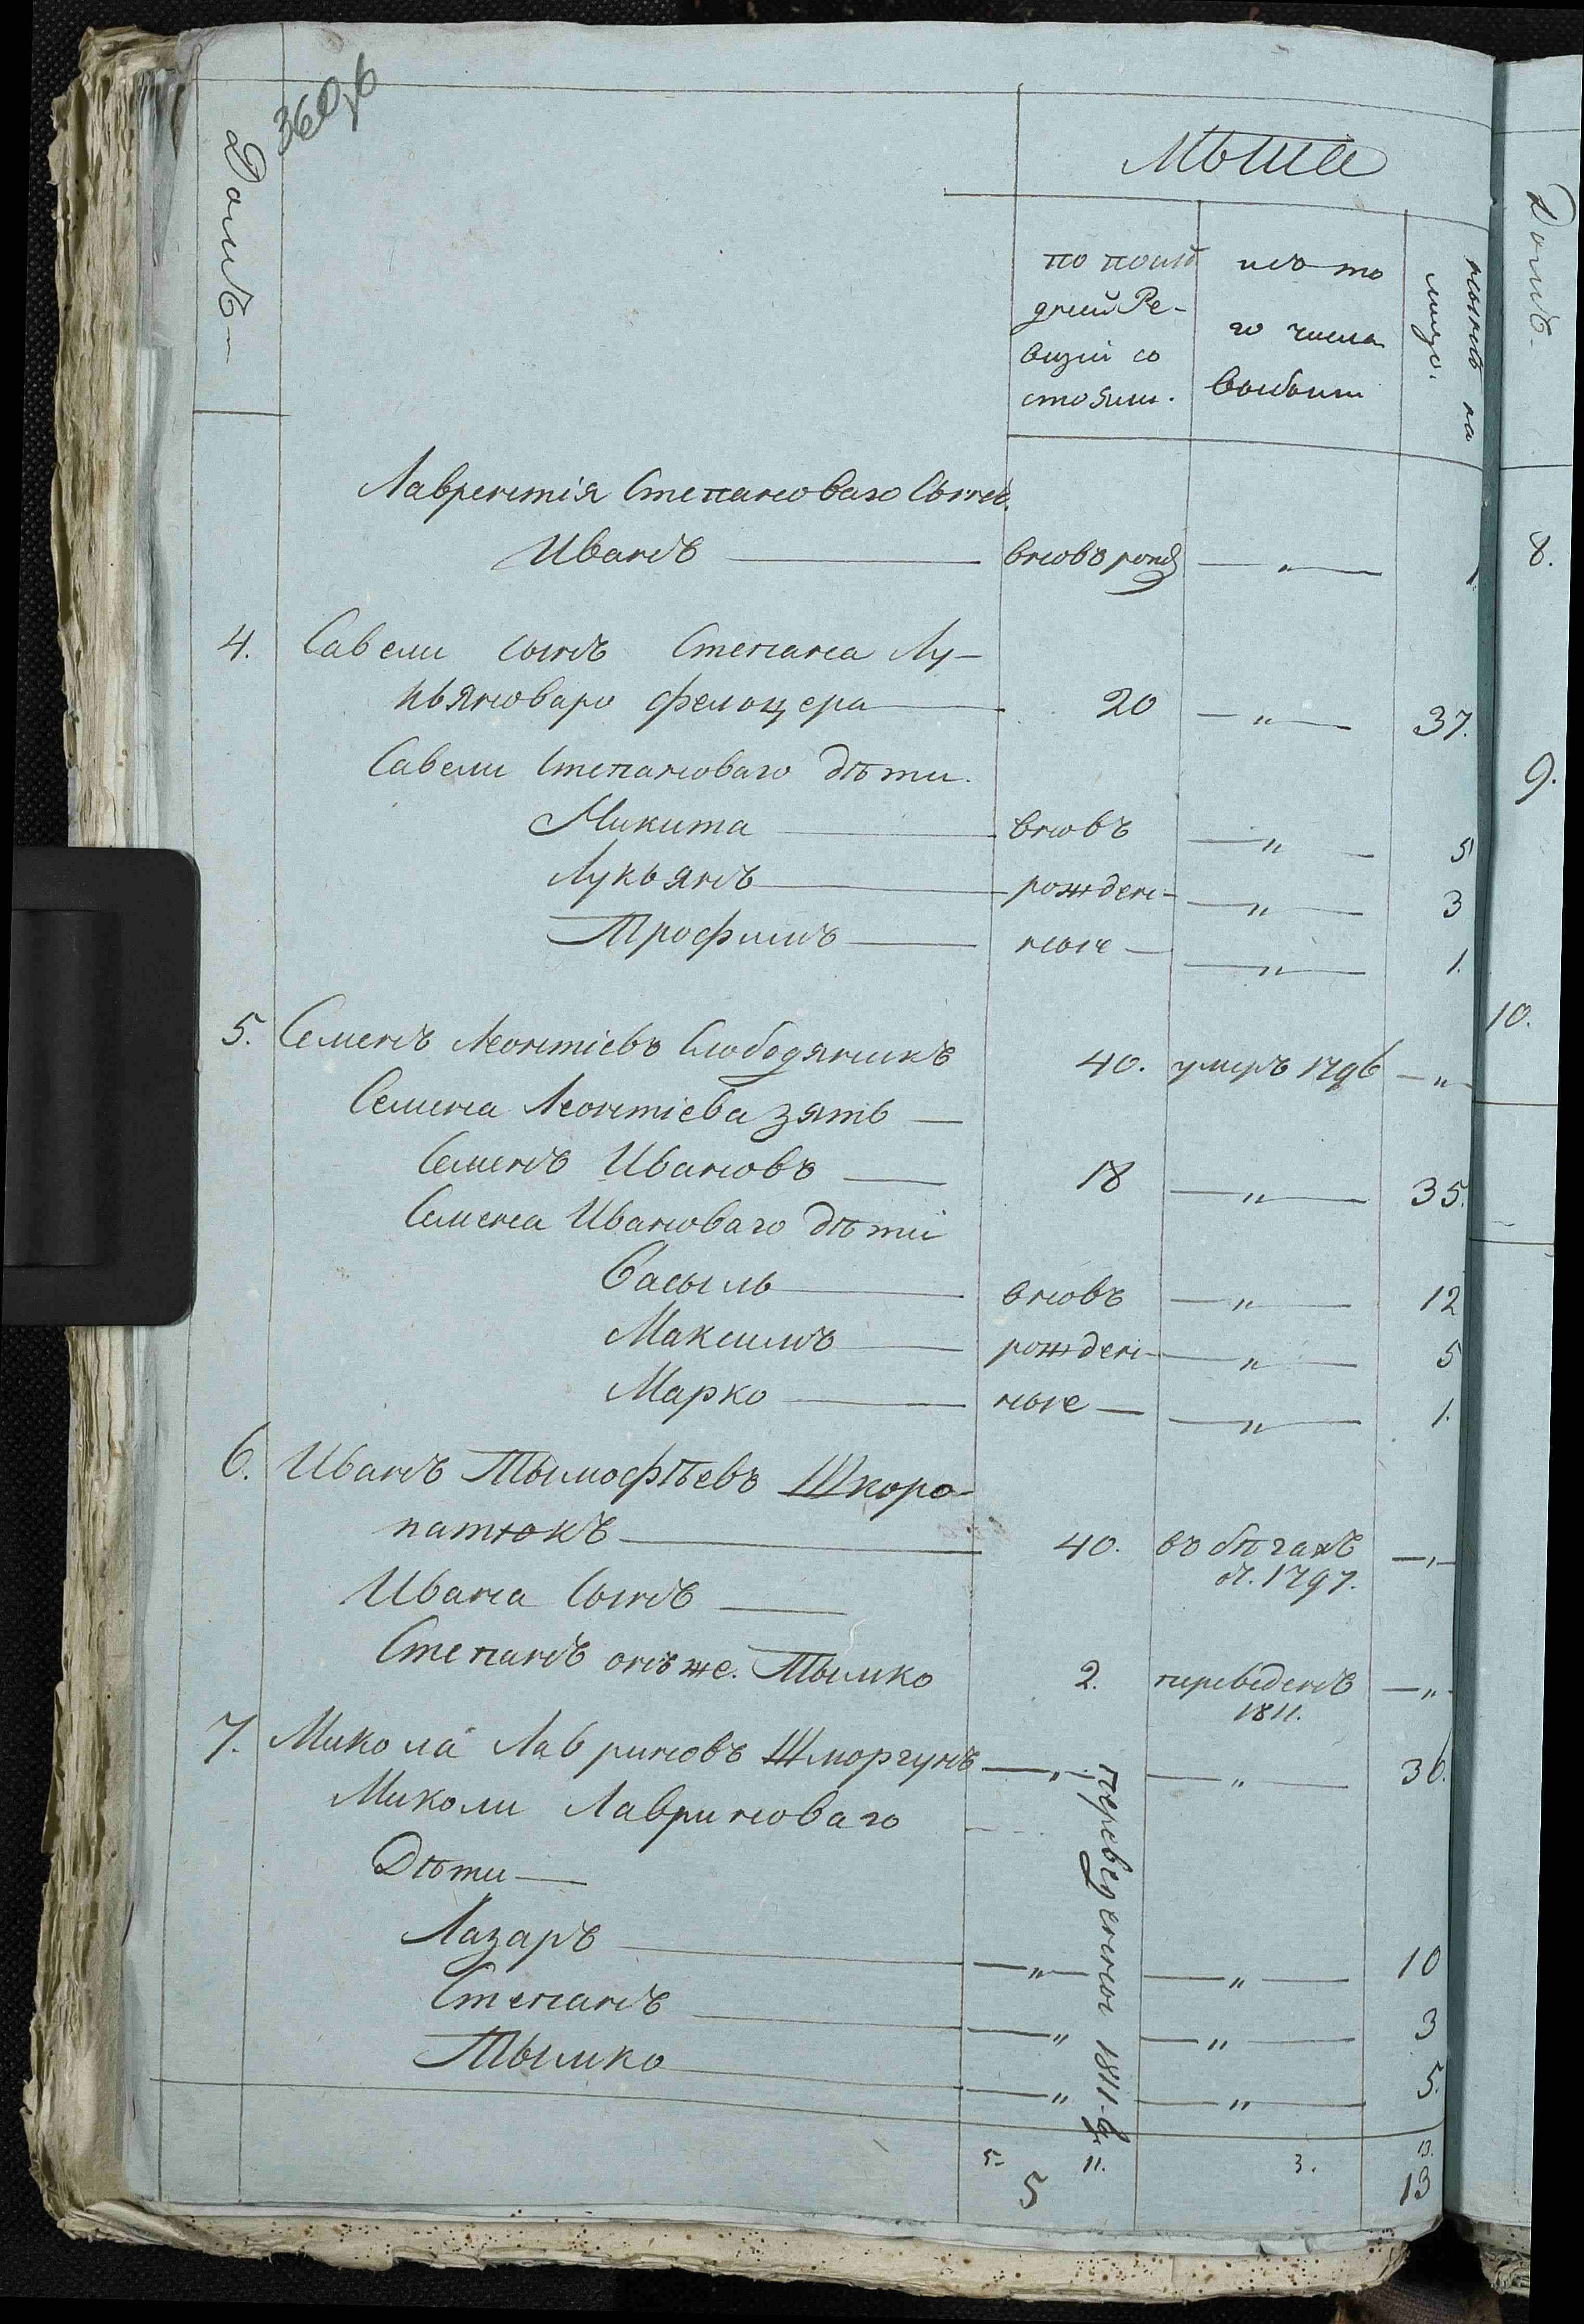 360об
Домъ
Лѣта
по послѣ
дней Ре-
визіи со
стояли.
изъ то
го числа
выбыли
нынѣ на
лицо.
Лаврентія Степановаго Сынъ.
Иванъ вновь рожд — „ — 1
4. Савели сынъ Степана Лу-
кьяноваго фелоцера 20 — „ — 37.
Савели Степановаго дѣти.
Микита вновь — „ — 5
Лукьянъ рожден- — „ — 3
Трофимъ ные — „ — 1.
5. Семенъ Леонтіевъ Слободяникъ 40. умеръ 1796 — „ —
Семена Леонтіева зять —
Семенъ Ивановъ — 18 — „ — 35.
Семена Ивановаго дѣти
Васыль вновь — „ — 12
Максимъ рожден- — „ — 5
Марко ные — „ — 1.
6. Иванъ Тымофѣевъ Шкоро-
патюкъ 40. въ бѣгахъ — „ —
1797.
Ивана Сынъ —
Степанъ онъ же. Тымко 2. переведенъ — „ —
1811.
7. Микола Лавриновъ Шморгунъ — „ — „ — 36.
Миколи Лавриноваго
Дѣти —
Лазаръ — „ — „ — 10
Степанъ — „ — „ — 3
Тымко — „ — „ — 5.
переведенны 1811-
5- 11. 3. 13.
5 13
Домъ-
8.
9.
10.